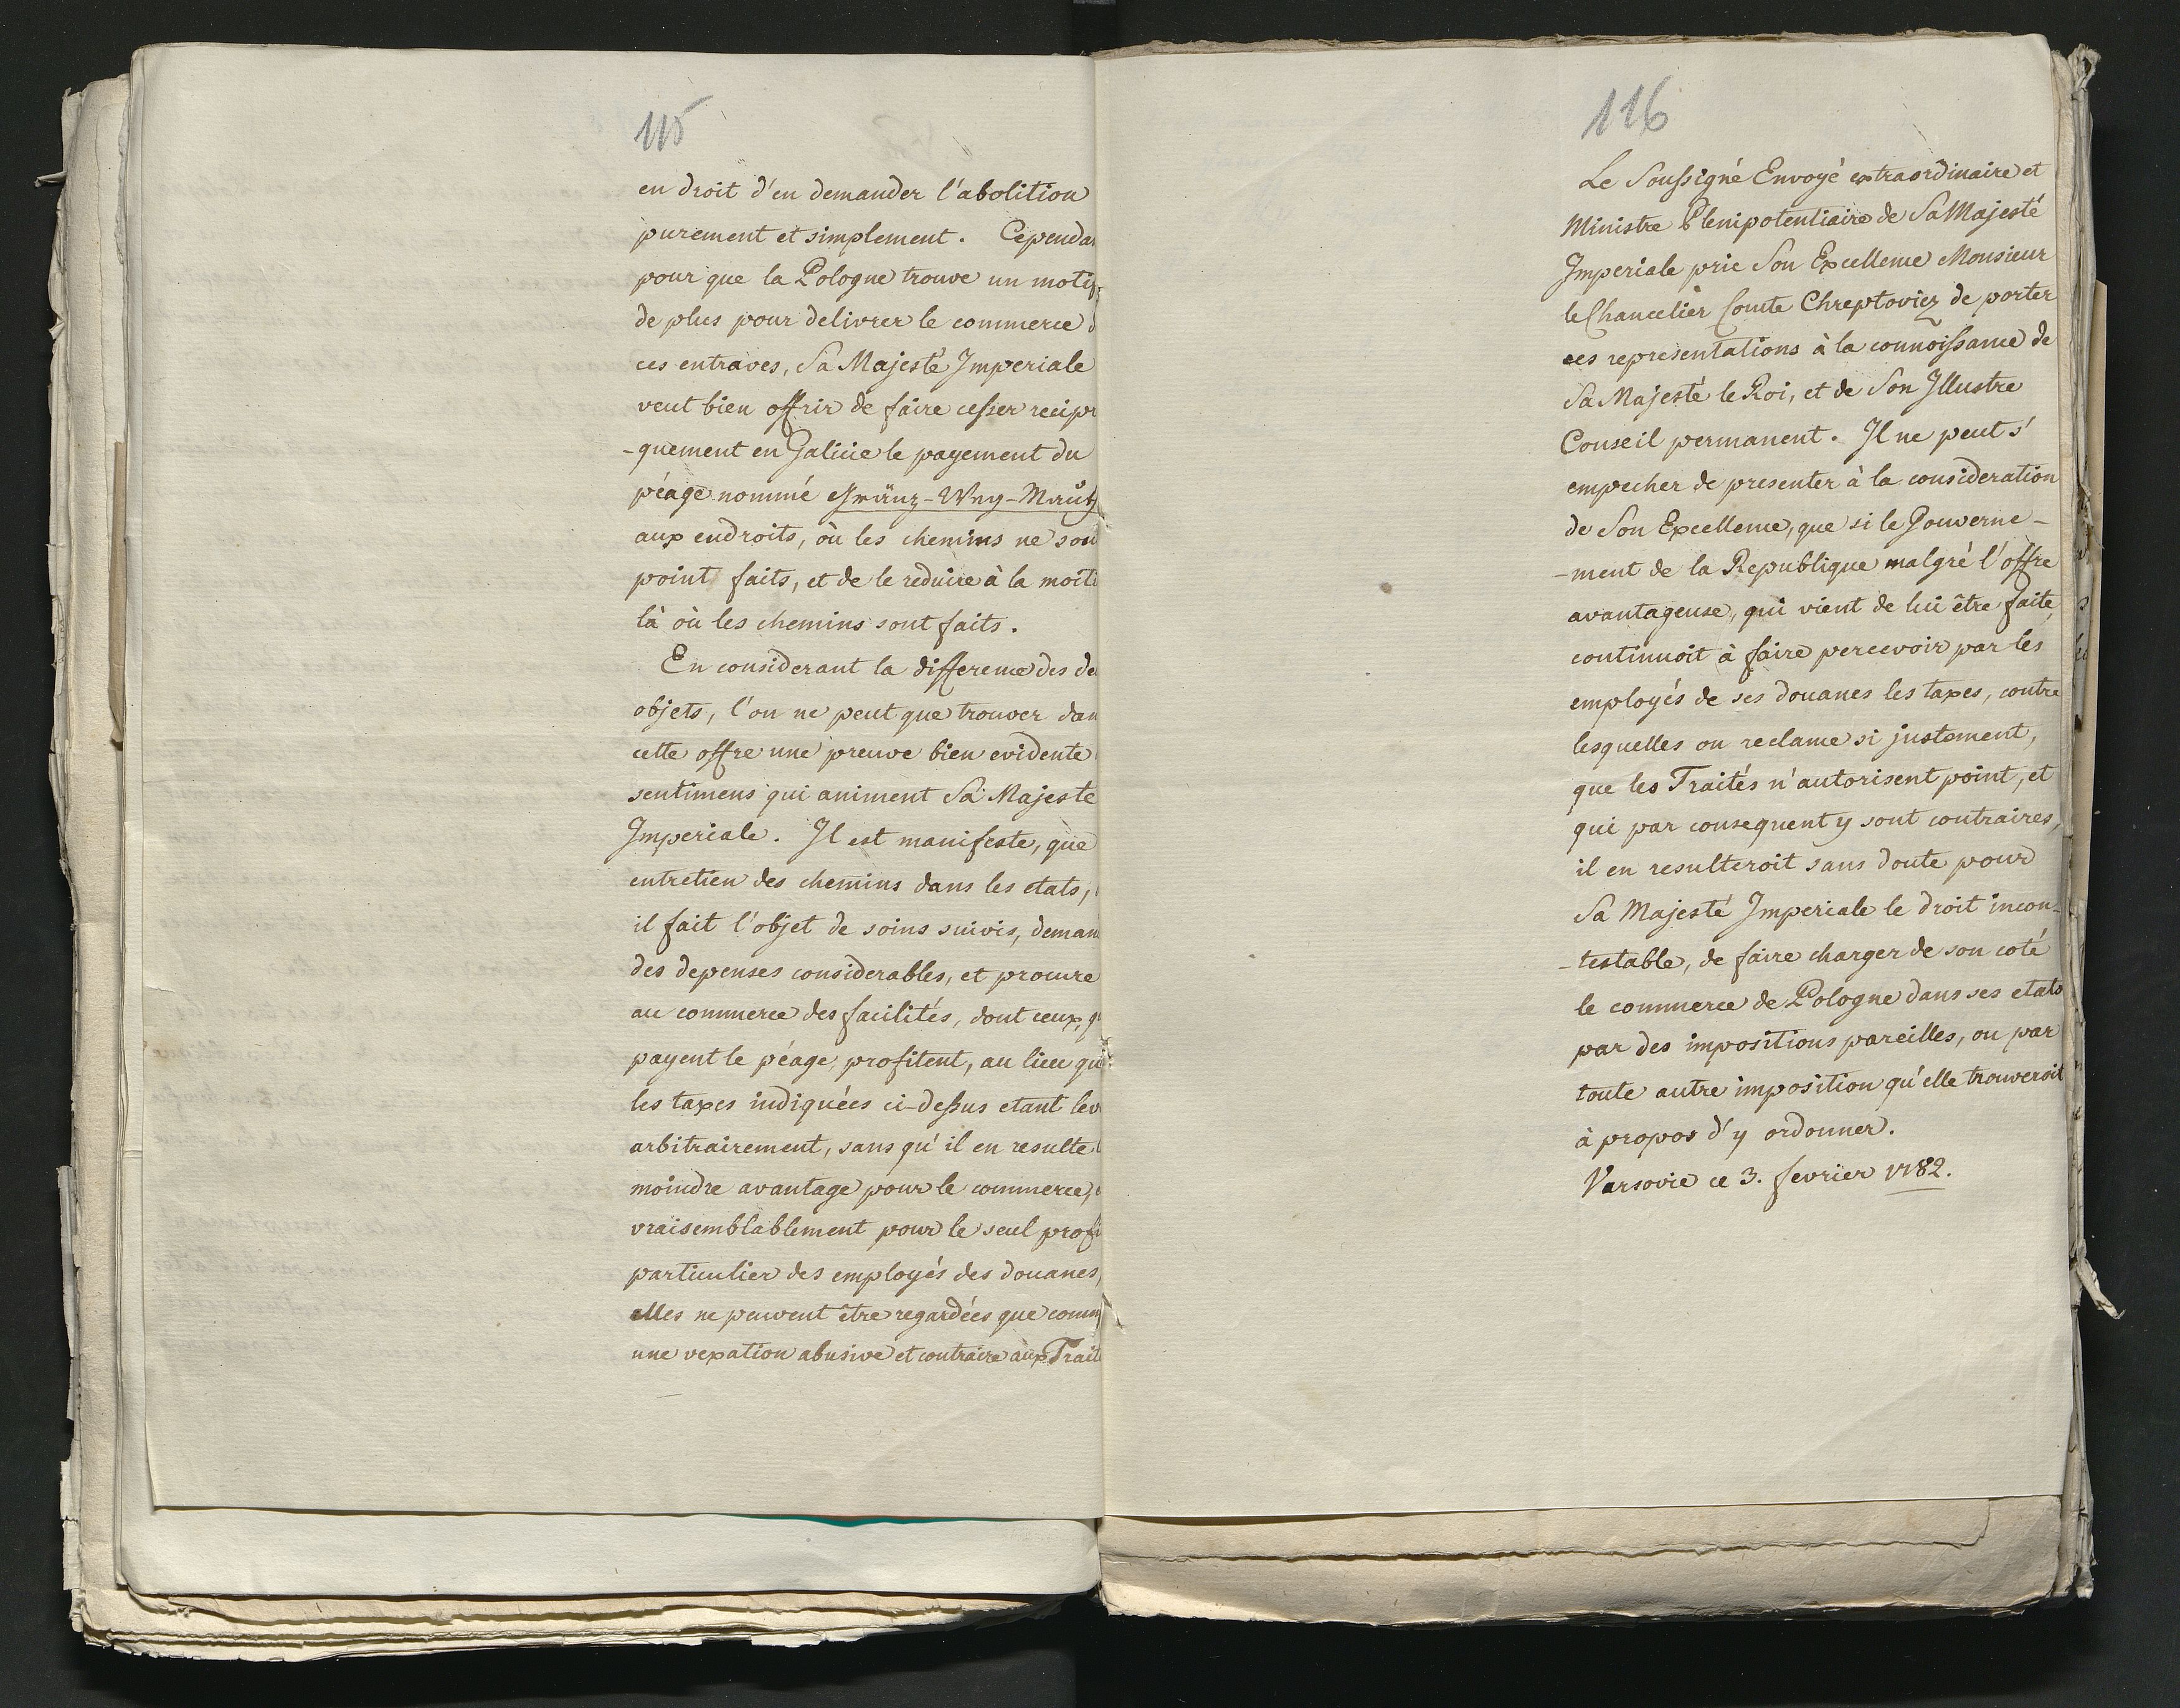 115
en droit d'en demander l'abolition
purement et simplement. Cependa
pour que la Pologne trouve un moti
de plus pour delivrer le commerce d
ces entraves, Sa Majesté Imperiale
veut bien offrir de faire cesser recipr
-quement en Galicie le payement du
péage nommé Gränz-Weg-Mauth
aux endroits, où les chemins ne son
point faits, et de le reduire à la moiti
là où les chemins sont faits.
En considerant la difference des de
objets, l'on ne peut que trouver dan
cette offre une preuve bien evidente
sentimens qui animent Sa Majesté
Imperiale. Il est manifeste, que
entretien des chemins dans les etats,
il fait l'objet de soins suivis, deman
des depenses considerables, et procure
au commerce des facilités, dont ceux, q
payent le péage, profitent, au lieu qu
les taxes indiquées ci-dessus etant lev
arbitrairement, sans qu'il en resulte l
moindre avantage pour le commerce,
vraisemblablement pour le seul profi
particulier des employés des douanes,
elles ne peuvent être regardées que comm
une vexation abusive et contraire aux Trait
116
Le Soussigné Envoyé extraordinaire et
Ministre Plenipotentiaire de Sa Majesté
Imperiale prie Son Excellence Monsieur
le Chancelier Comte Chreptoviez de porter
ces representations à la connoissance de
Sa Majesté le Roi, et de Son Illustre
Conseil permanent. Il ne peut s'
empecher de presenter à la consideration
de Son Excellence, que si le Gouverne-
-ment de la Republique malgré l'offre
avantageuse, qui vient de lui être faite,
continuoit à faire percevoir par les
employés de ses douanes les taxes, contre
lesquelles on reclame si justement,
que les Traités n'autorisent point, et
qui par consequent y sont contraires,
il en resulteroit sans doute pour
Sa Majesté Imperiale le droit incon-
-testable, de faire charger de son coté
le commerce de Pologne dans ses etats
par des impositions pareilles, ou par
toute autre imposition qu'elle trouveroit
à propos d'y ordonner.
Varsovie ce 3. fevrier 1782.